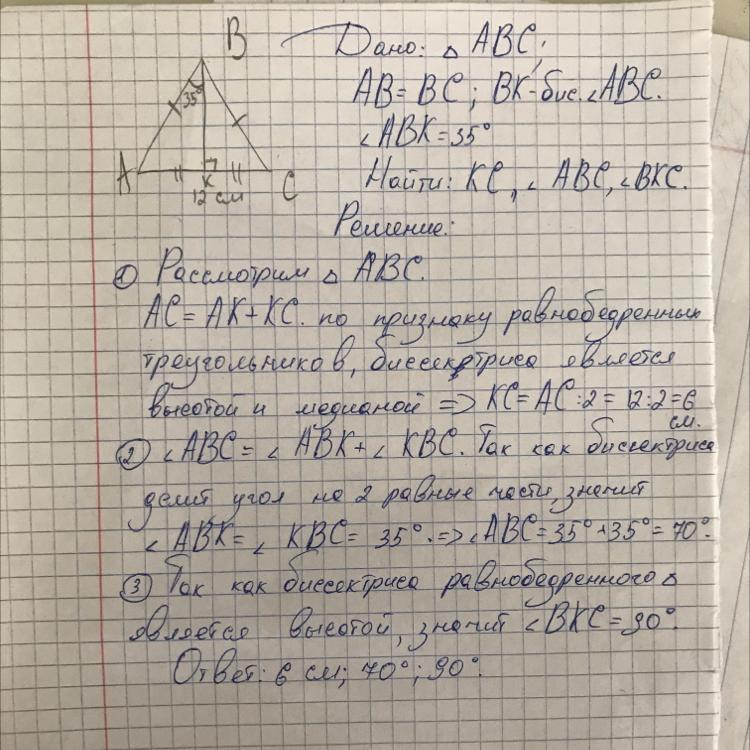 B
Дано: △ ABC;
35°
AB = BC; BK-бис. ∠ABC.
∠ABK = 35°
A K C
12 см
Найти: KC, ∠ABC, ∠BKC.
Решение:
① Рассмотрим △ ABC.
AC = AK + KC. по признаку равнобедренных
треугольников, биссектриса является
высотой и медианой => KC = AC : 2 = 12 : 2 = 6
см.
② ∠ABC = ∠ABK + ∠KBC. Так как биссектриса
делит угол на 2 равные части, значит
∠ABK = ∠KBC = 35°. => ∠ABC = 35° + 35° = 70°.
③ Так как биссектриса равнобедренного △
является высотой, значит ∠BKC = 90°.
Ответ: 6 см; 70°; 90°.